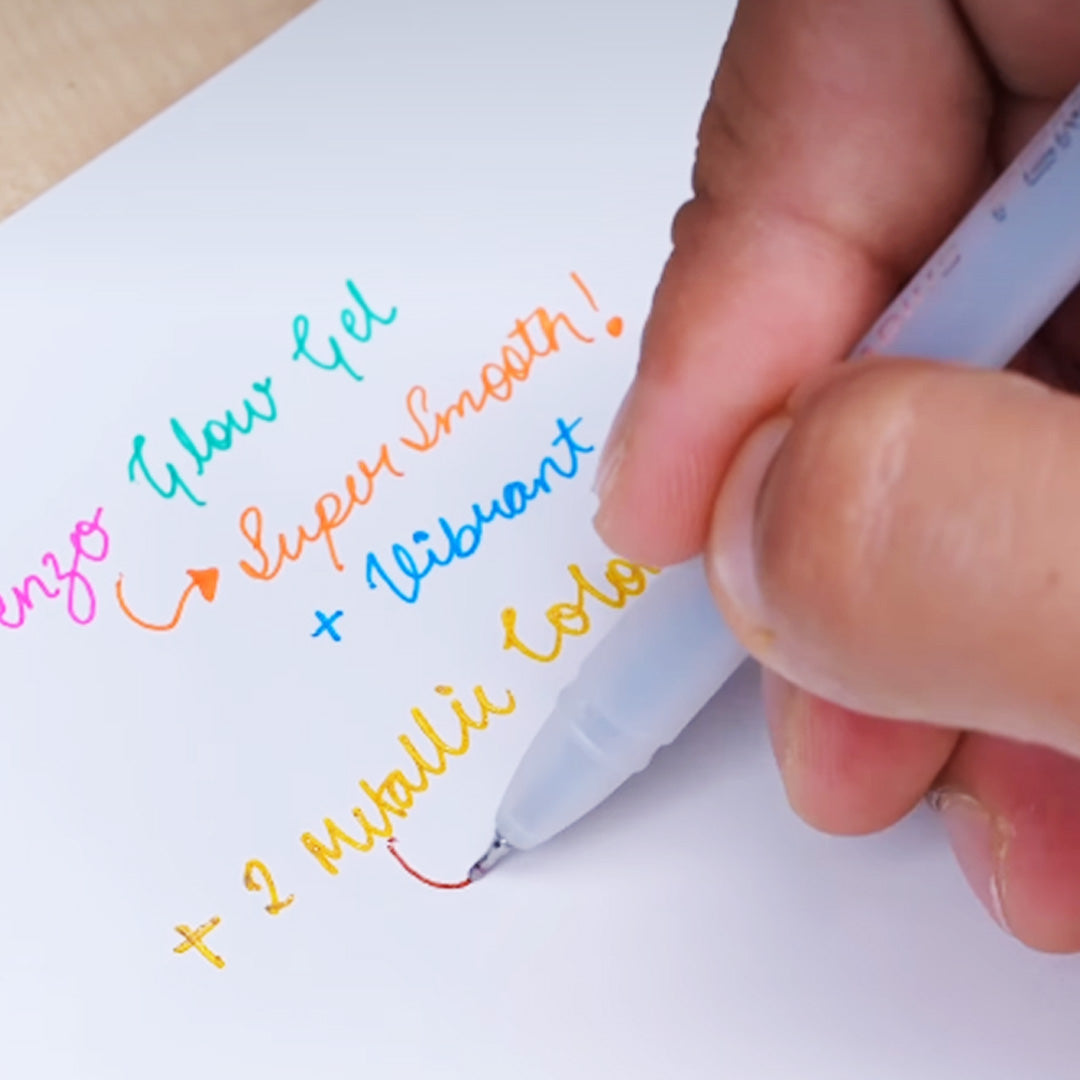 enzo Glow Gel
Super Smooth!
+ Vibrant
+ 2 Metallic Colo